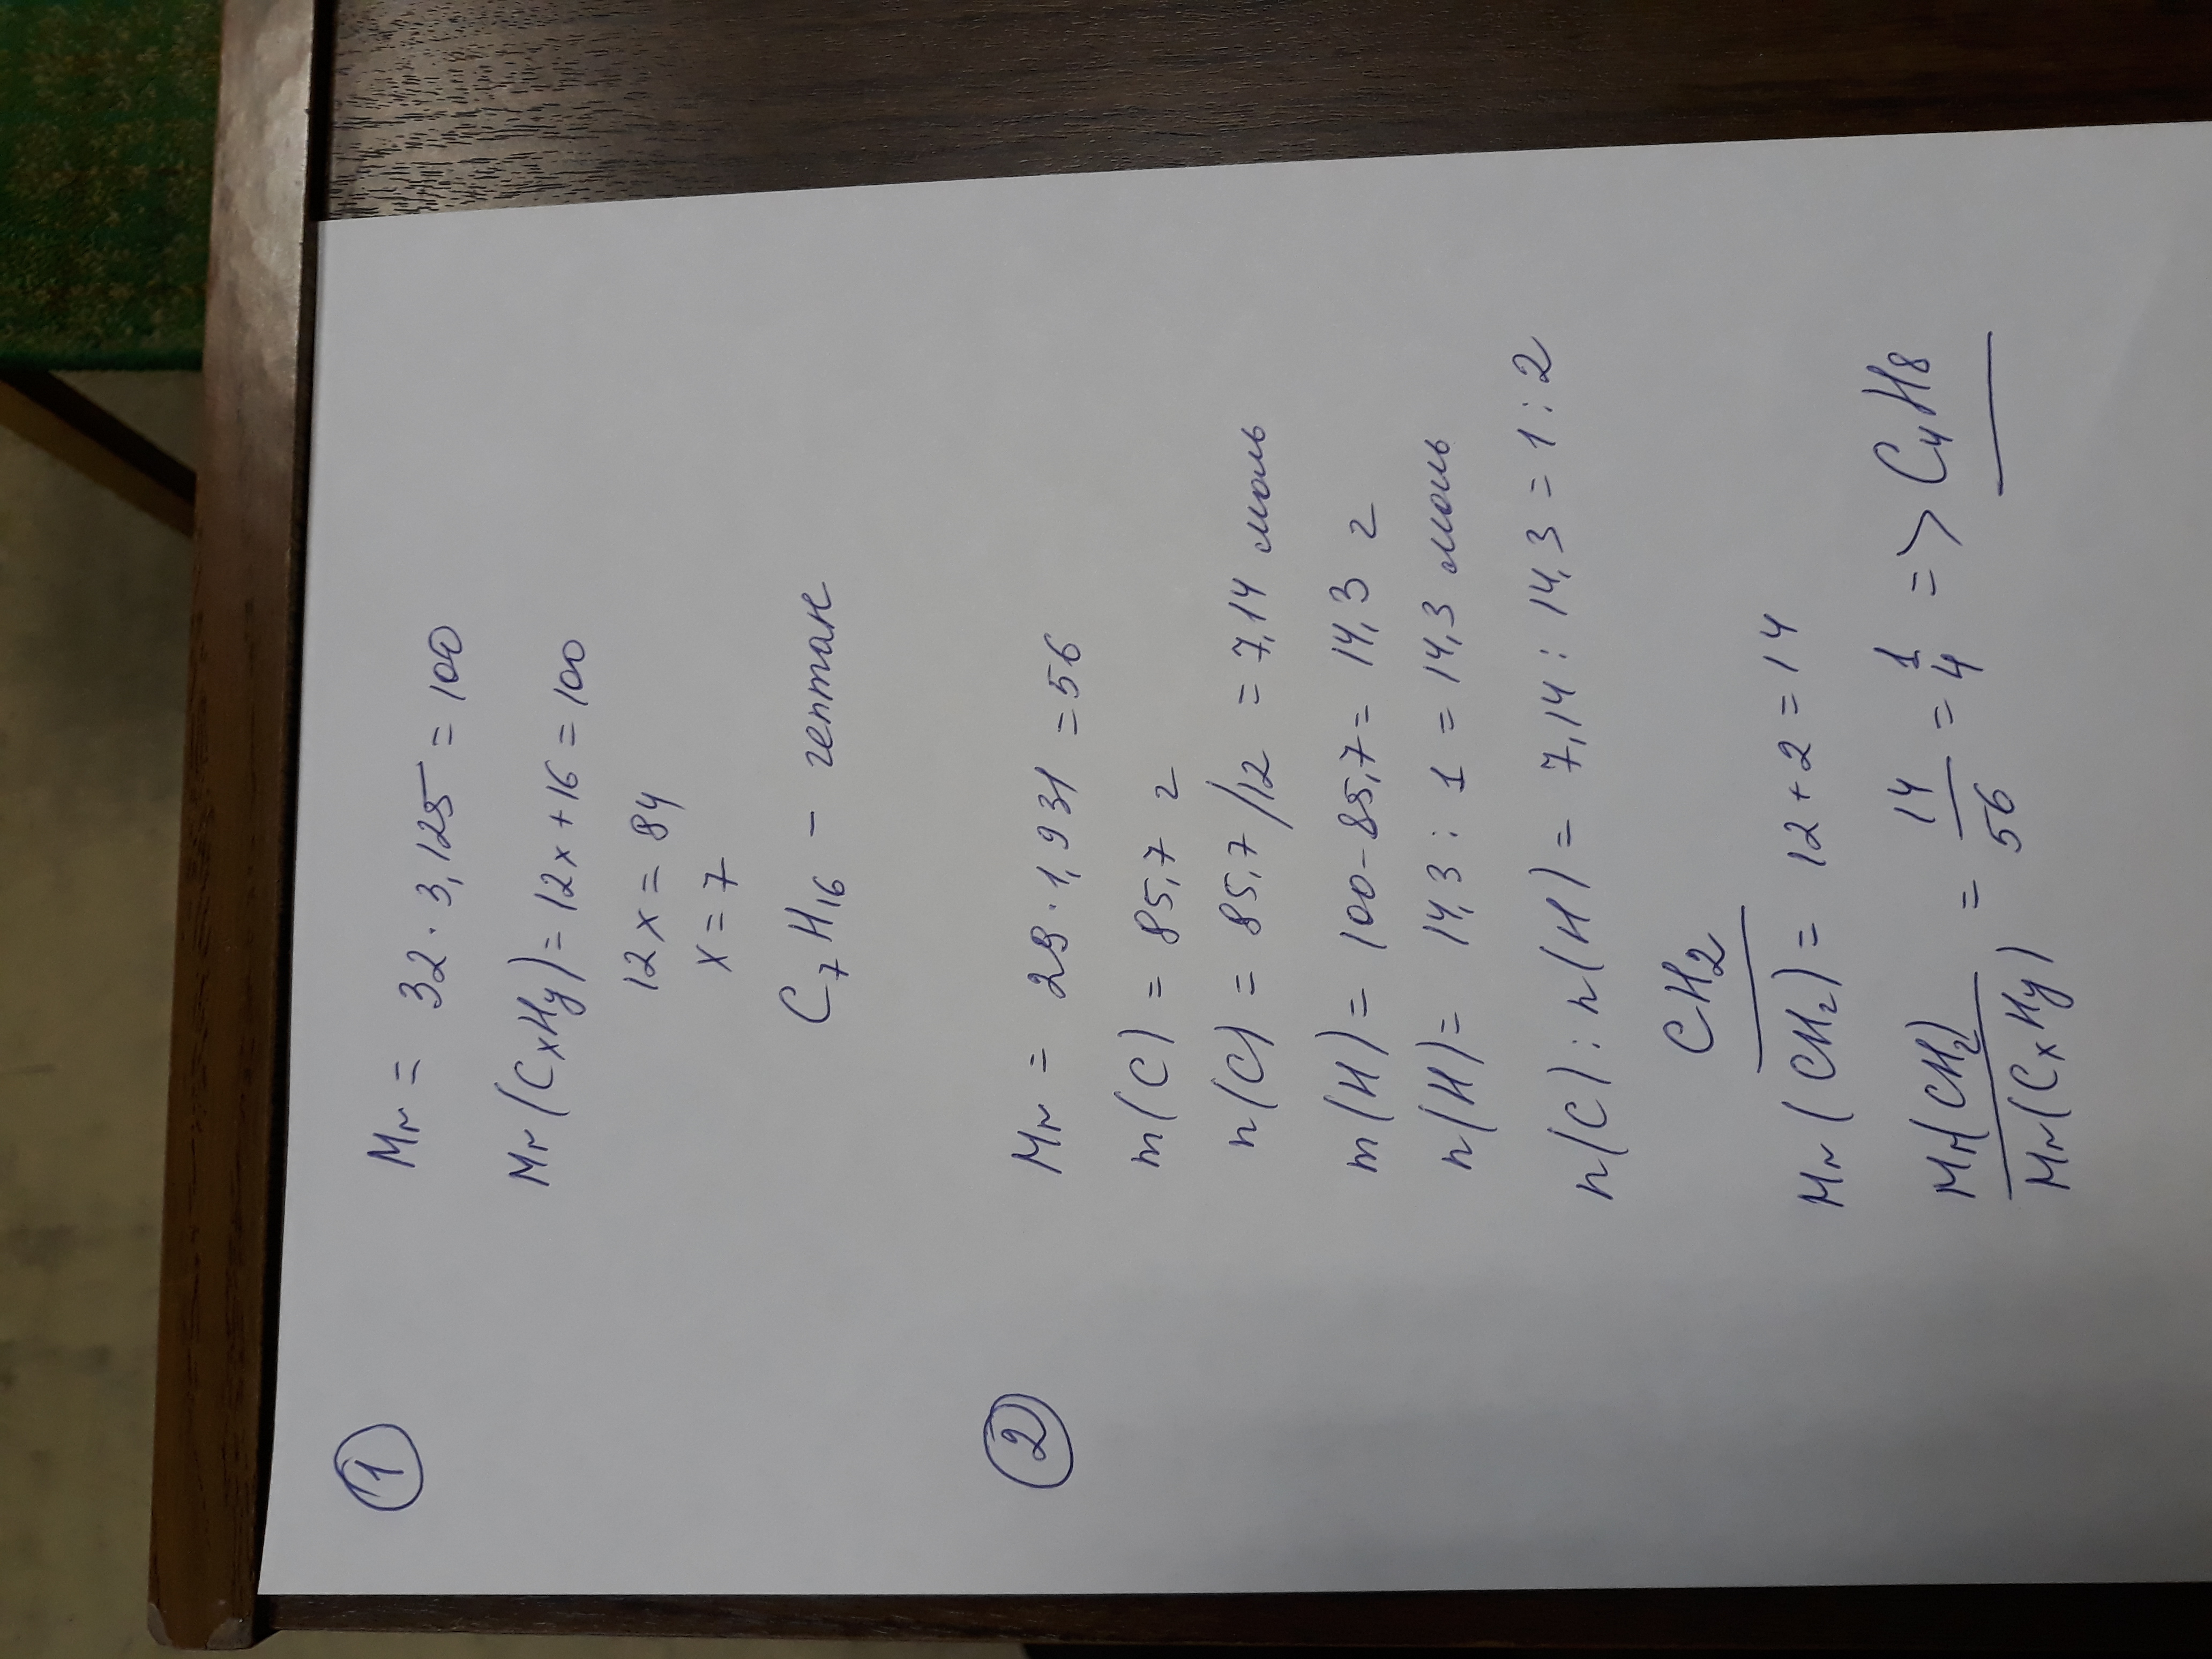 1
Mr = 32 · 3,125 = 100
Mr (CxHy) = 12x + 16 = 100
12x = 84
x = 7
C7H16 – гептан
2
Mr = 29 · 1,931 = 56
m(C) = 85,7 г
n(C) = 85,7/12 = 7,14 моль
m(H) = 100-85,7 = 14,3 г
n(H) = 14,3 : 1 = 14,3 моль
n(C) : n(H) = 7,14 : 14,3 = 1 : 2
CH2
Mr (CH2) = 12+2 = 14
Mr(CH2) / Mr(CxHy) = 14/56 = 1/4 => C4H8